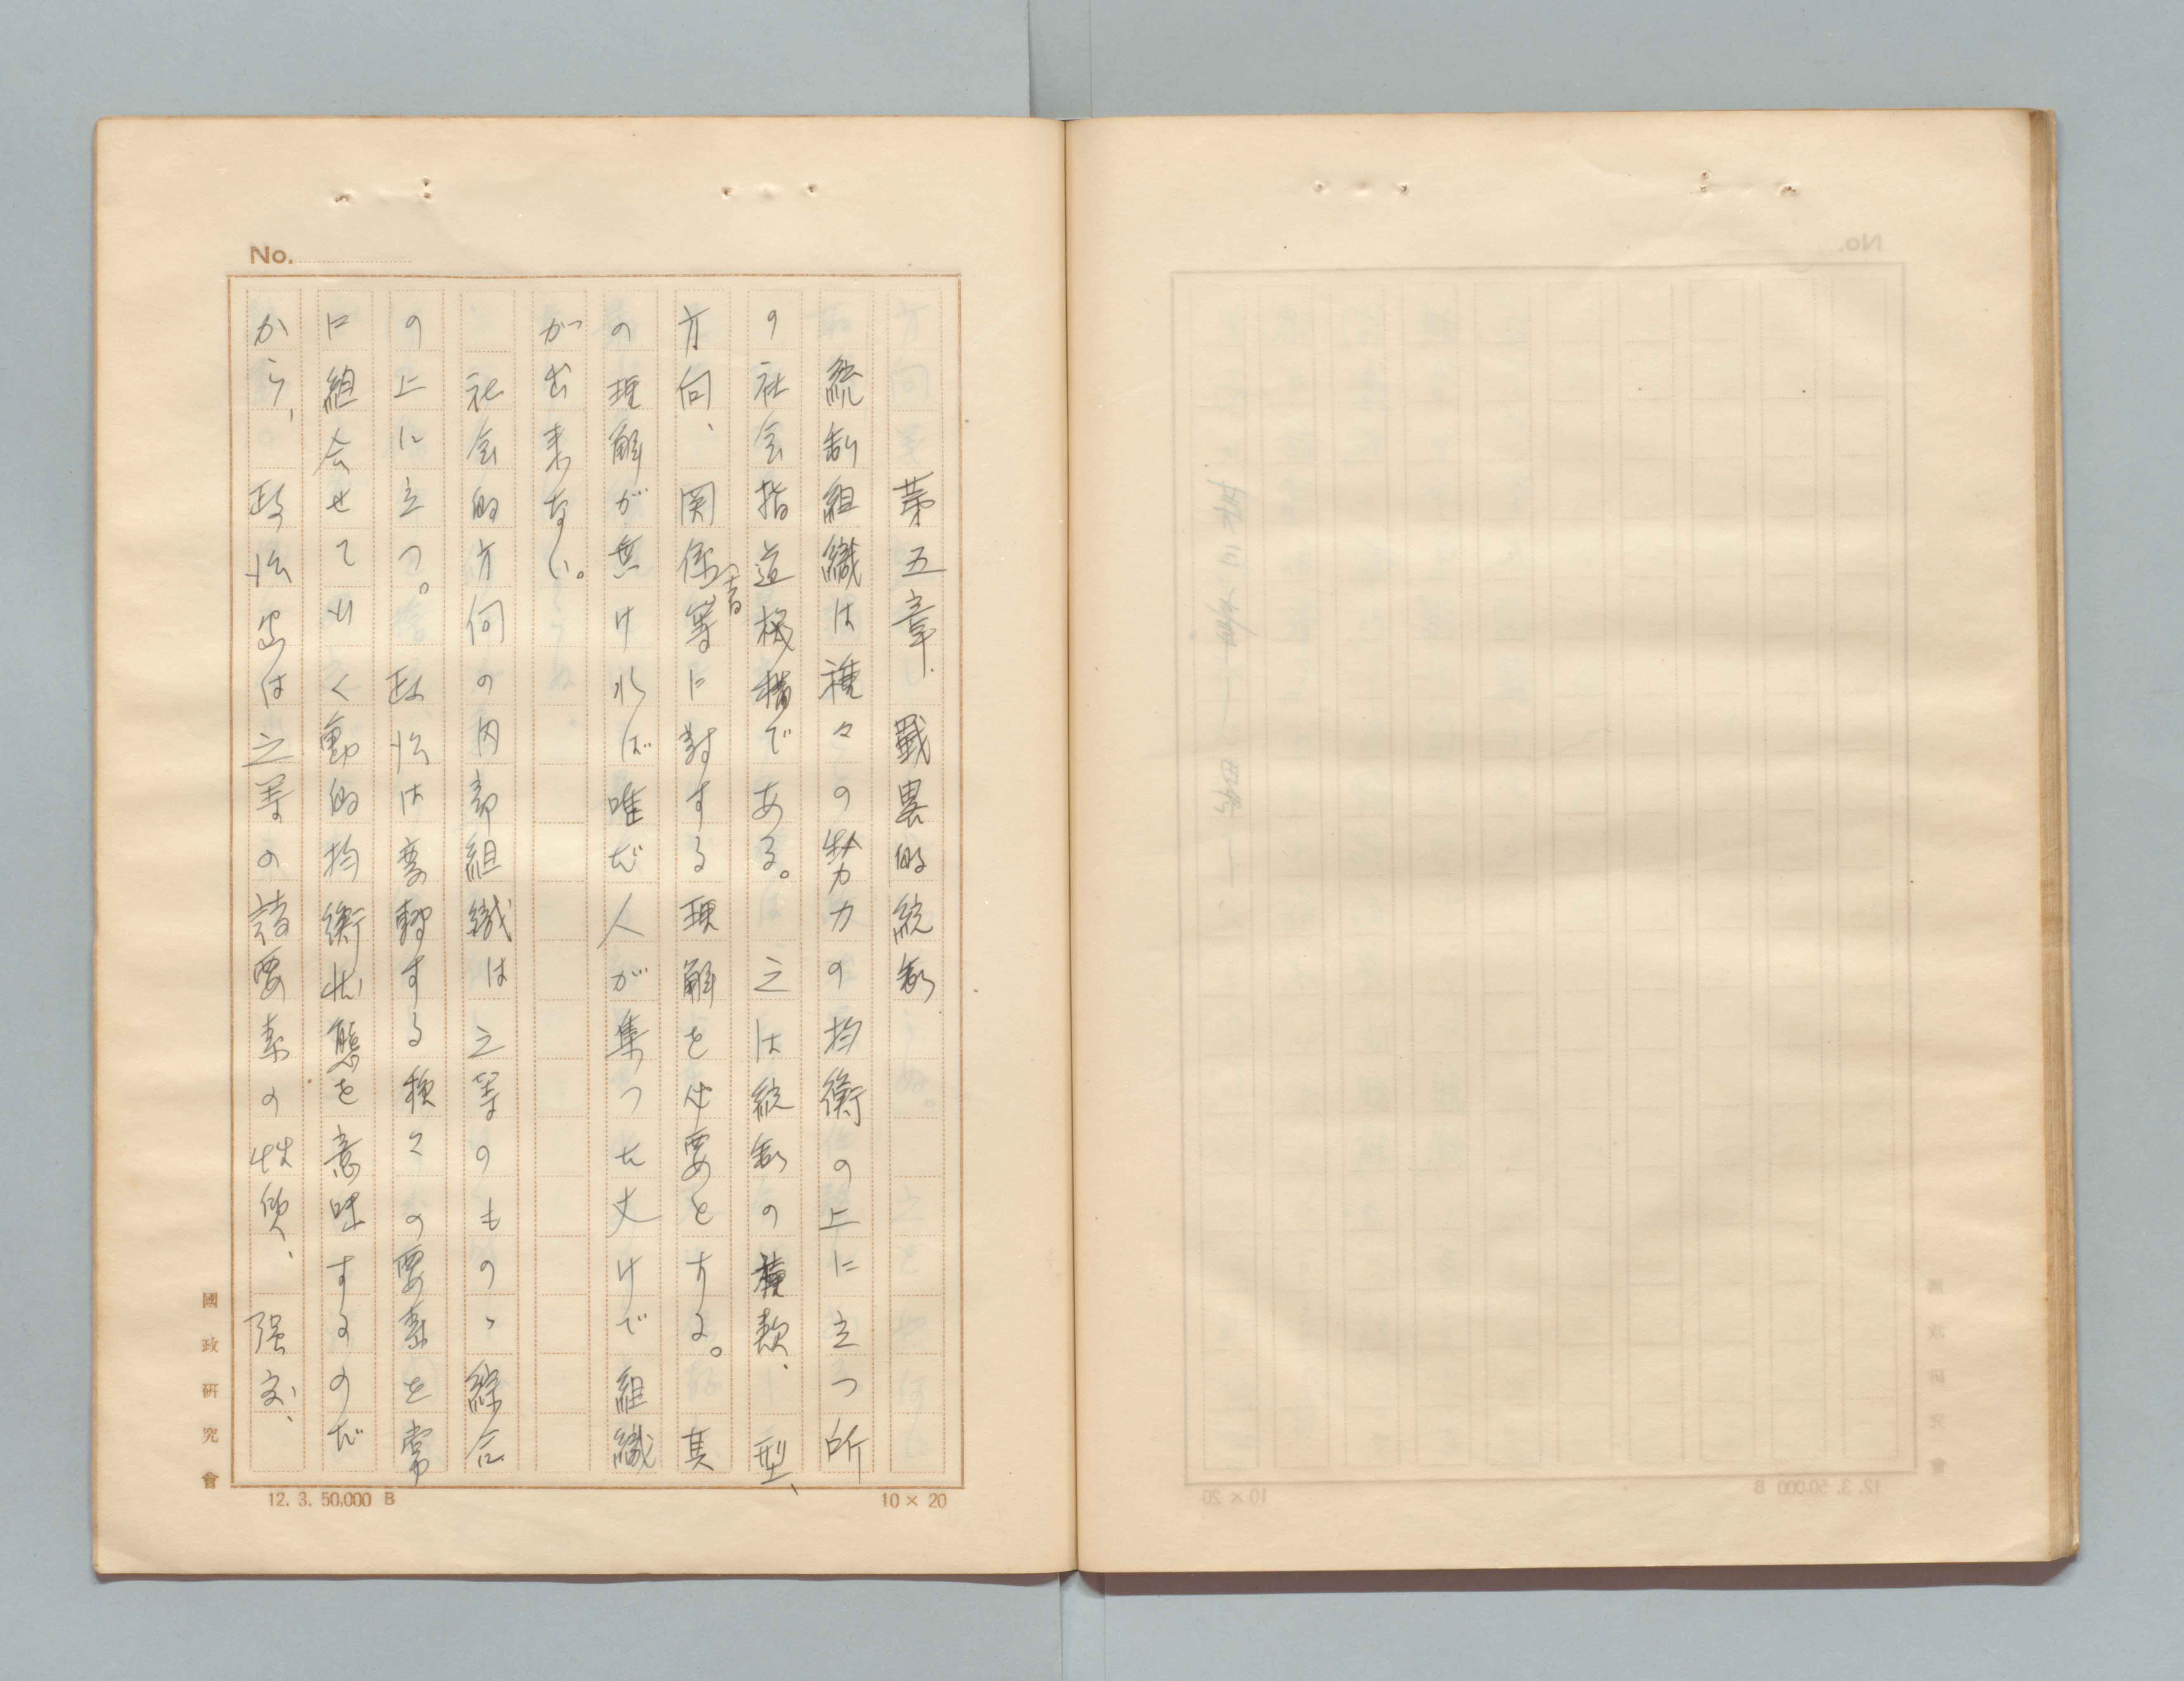 No.
第五章 戰畧的統制
統制組織は種々の勢力の均衡の上に立つ所
の社会指導機構である。之は統制の種類、型、
方向、関係等に對する理解を必要とする。其
の理解が無ければ唯だ人が集つた丈けで組織
が出来ない。
社会的方向の内部組織は之等のものゝ綜合
の上に立つ。政治は変轉する種々の要素を常
に組合せて行く動的均衡状態を意味するのだ
から、政治家は之等の諸要素の性質、强度、
國政研究會
12. 3. 50,000 B
10×20